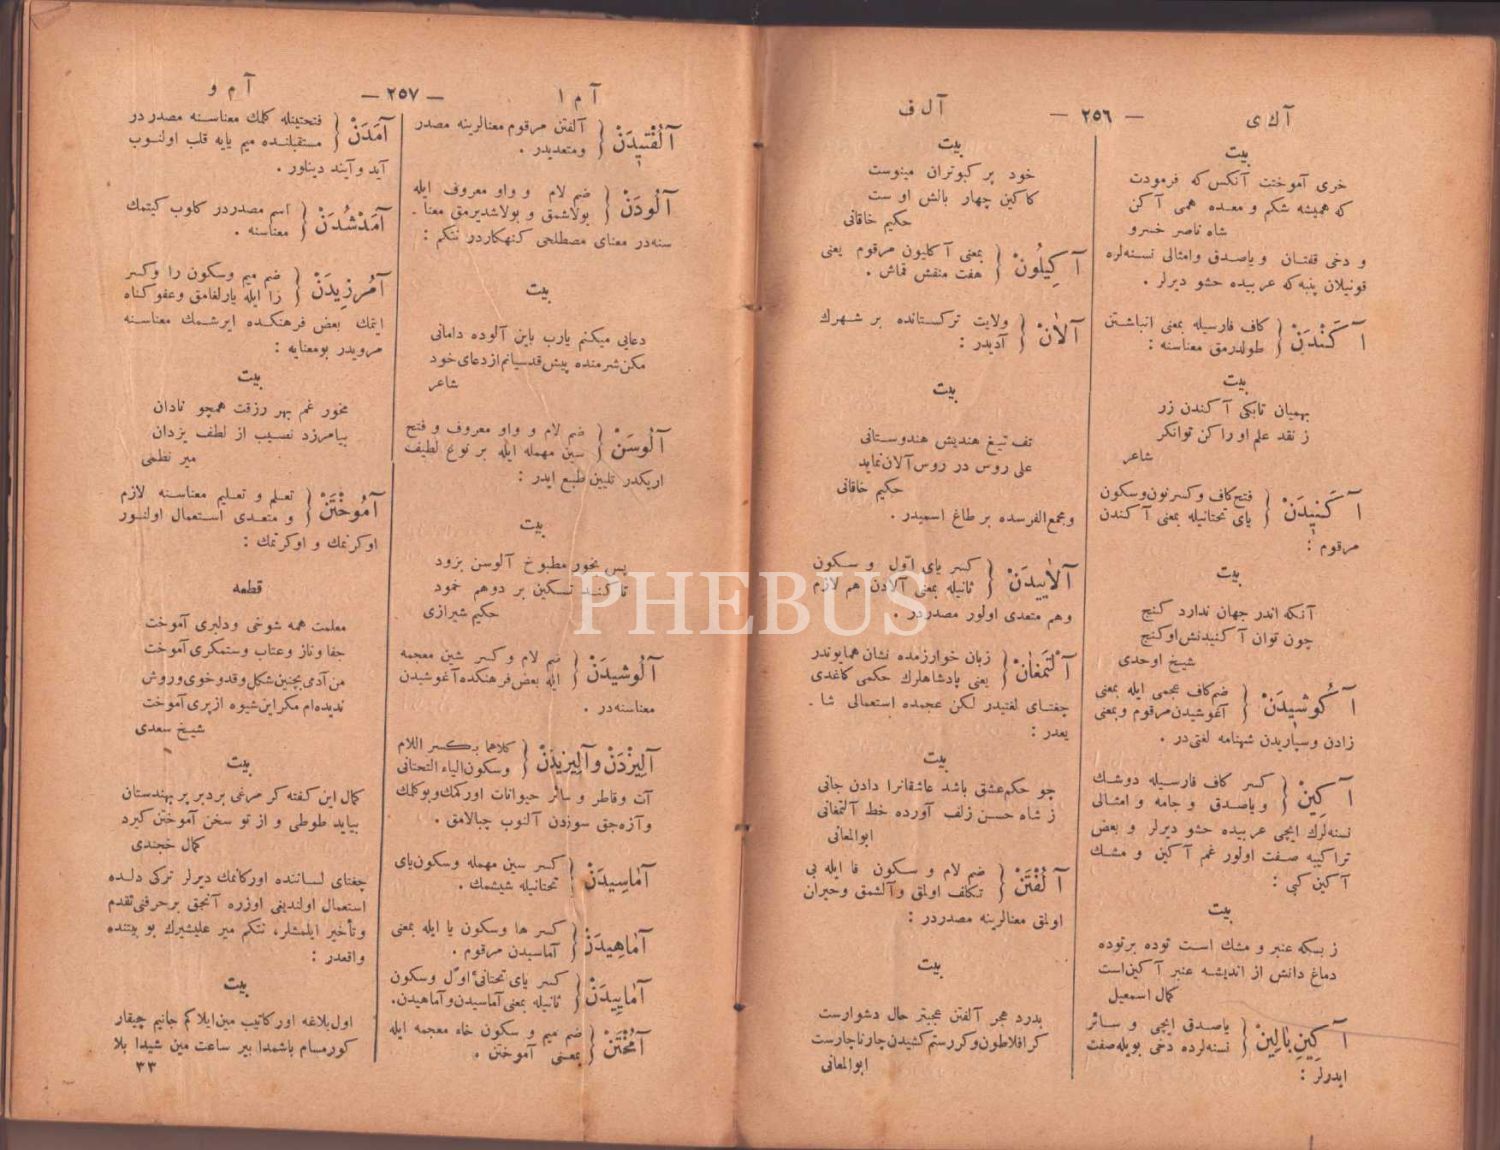 آ ك ى — ٢٥٦ — آ ل ف
بيت
خرى آموخت آنكس كه فرمودت
كه هميشه شكم و معده همى آ كن
شاه ناصر خسرو
و دخى قفتان و ياصدق وامثالى نسنه لره
قونيلان پنبه كه عربيده حشو ديرلر .
آ كَنْدَنْ } كاف فارسيله بمعنى انباشتن
طولدرمق معناسنه :
بيت
بهميان تابكى آ كندن زر
ز نقد علم او را كن توانكر
شاعر
آ كَنِيدَنْ } فتح كاف و كسر نون و سكون
ياى تحتانيله بمعنى آ كندن
مرقوم :
بيت
آنكه اندر جهان ندارد كنج
چون توان آ كنيدنش او كنج
شيخ اوحدى
آ كُوشِيدَنْ } ضم كاف عجمى ايله بمعنى
آغوشيدن مرقوم و بمعنى
زادن و سپاريدن شهنامه لغتى در .
آ كِينْ } كسر كاف فارسيله دوشك
و ياصدق و جامه و امثالى
نسنه لرك ايچى عربيده حشو ديرلر و بعض
تراكيبه صفت اولور غم آ كين و مشك
آ كين كبى :
بيت
ز بسكه عنبر و مشك است توده بر توده
دماغ دانش از انديشه عنبر آ كين است
كمال اسمعيل
آ كِينِ بَالِينْ } ياصدق ايچى و سائر
نسنه لرده دخى بويله صفت
ايدرلر :
بيت
خود پر كبوتران مينوست
كاكين چهار بالش اوست
حكيم خاقانى
آ كِيلُونْ } بمعنى آ كليون مرقوم يعنى
هفت منقش قماش .
آلَانْ } ولايت تركستانده بر شهرك
آديدر :
بيت
تف تيغ هنديش هندوستانى
على روس در روس آلان نمايد
حكيم خاقانى
و مجمع الفرسده بر طاغ اسميدر .
آلَايِيدَنْ } كسر ياى اوّل و سكون
ثانيله بمعنى آلادن هم لازم
و هم متعدى اولور مصدردر .
آلْتَمْغَانْ } زبان خوارزمده نشان همايوندر
يعنى پادشاهلرك حكمى كاغدى
چغتاى لغتيدر لكن عجمده استعمالى شا .
يعدر :
بيت
چو حكم عشق باشد عاشقانرا دادن جانى
ز شاه حسن زلف آورده خط آلتمغانى
ابوالمعانى
آ لُفْتَنْ } ضم لام و سكون فا ايله بى
تكلف اولمق و آلشمق و حيران
اولمق معنالرينه مصدردر :
بيت
بدرد هجر آلفتن عجبتر حال دشوارست
كر افلاطون و كر رستم كشيدن چار ناچارست
ابوالمعانى
آ م ا — ٢٥٧ — آ م و
آلُفْتِيدَنْ } آلفتن مرقوم معنالرينه مصدر
و متعديدر .
آلُودَنْ } ضم لام و واو معروف ايله
بولاشمق و بولاشديرمق معنا .
سنه در معناى مصطلحى كنهكاردر نتكم :
بيت
دعايى ميكنم يارب باين آلوده دامانى
مكن شرمنده پيش قدسيانم از دعاى خود
شاعر
آلُوسَنْ } ضم لام و واو معروف و فتح
سين مهمله ايله بر نوع لطيف
اريكدر تليين طبع ايدر :
بيت
پس بخور مطبوخ آلوسن بزود
تا كند تسكين بر دوهم خمود
حكيم شيرازى
آلُوشِيدَنْ } ضم لام و كسر شين معجمه
ايله بعض فرهنكده آغوشيدن
معناسنه در .
آلِيزْدَنْ و آلِيزِيدَنْ } كلاهما بكسر اللام
و سكون الياء التحتانى
آت و قاطر و سائر حيوانات اوركمك و بوكلك
و آزه جق سوزدن آلنوب چبالامق .
آمَاسِيدَنْ } كسر سين مهمله و سكون ياى
تحتانيله شيشمك .
آمَاهِيدَنْ } كسر ها و سكون يا ايله بمعنى
آماسيدن مرقوم .
آمَايِيدَنْ } كسر ياى تحتانئ اوّل و سكون
ثانيله بمعنى آماسيدن و آماهيدن.
آمُخْتَنْ } ضم ميم و سكون خاء معجمه ايله
بمعنى آموختن .
آمَدَنْ } فتحتينله كلمك معناسنه مصدردر
مستقبلنده ميم يايه قلب اولنوب
آيد و آيند دينلور .
آمَدْشُدَنْ } اسم مصدردر كلوب كيتمك
معناسنه .
آمُرزِيدَنْ } ضم ميم و سكون را و كسر
زا ايله يارلغامق و عفو كناه
ايتمك بعض فرهنكده ايرشمك معناسنه
مرويدر بومعنايه :
بيت
مخور غم بهر رزقت همچو نادان
بيامرزد نصيب از لطف يزدان
مير نظمى
آمُوخْتَنْ } تعلم و تعليم معناسنه لازم
و متعدى استعمال اولنور
اوكرنمك و اوكرتمك :
قطعه
معلمت همه شوخى و دلبرى آموخت
جفا و ناز و عتاب و ستمكرى آموخت
من آدمى بچنين شكل و قد و خوى و روش
نديده ام مكر اين شيوه از پرى آموخت
شيخ سعدى
بيت
كمال اين كفته كر مرغى برد بر پر بهندستان
بيايد طوطى و از تو سخن آموختن كيرد
كمال خجندى
چغتاى لساننده اوركانمك ديرلر تركى دلده
استعمال اولنديغى اوزره آنجق بر حرفنى تقدم
و تأخير ايلمشلر، نتكم مير عليشيرك بو بيتنده
واقعدر :
بيت
اول بلاغه اوركاتيب مين ايلا كم جانيم چيقار
كورمسام باشمدا بير ساعت مين شيدا بلا
٣٣
PHEBUS